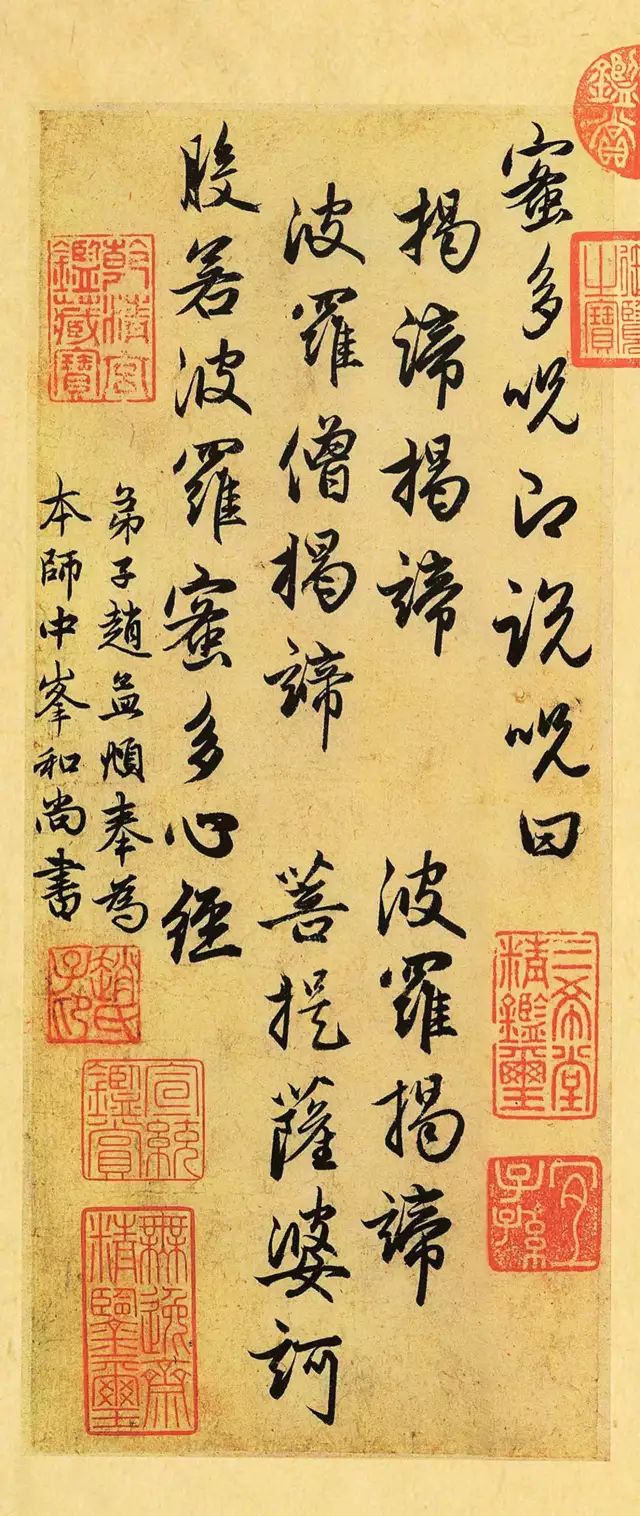 蜜多呪即说呪曰
揭諦揭諦 波羅揭諦
波羅僧揭諦 菩提薩婆訶
般若波羅蜜多心經
弟子趙孟頫奉為
本師中峯和尚書
鑑賞
御覽之寶
三希堂精鑑璽
宜子孫
乾清宮鑑藏寶
趙氏子昂
宣統鑑賞
無逸齋精鑒璽